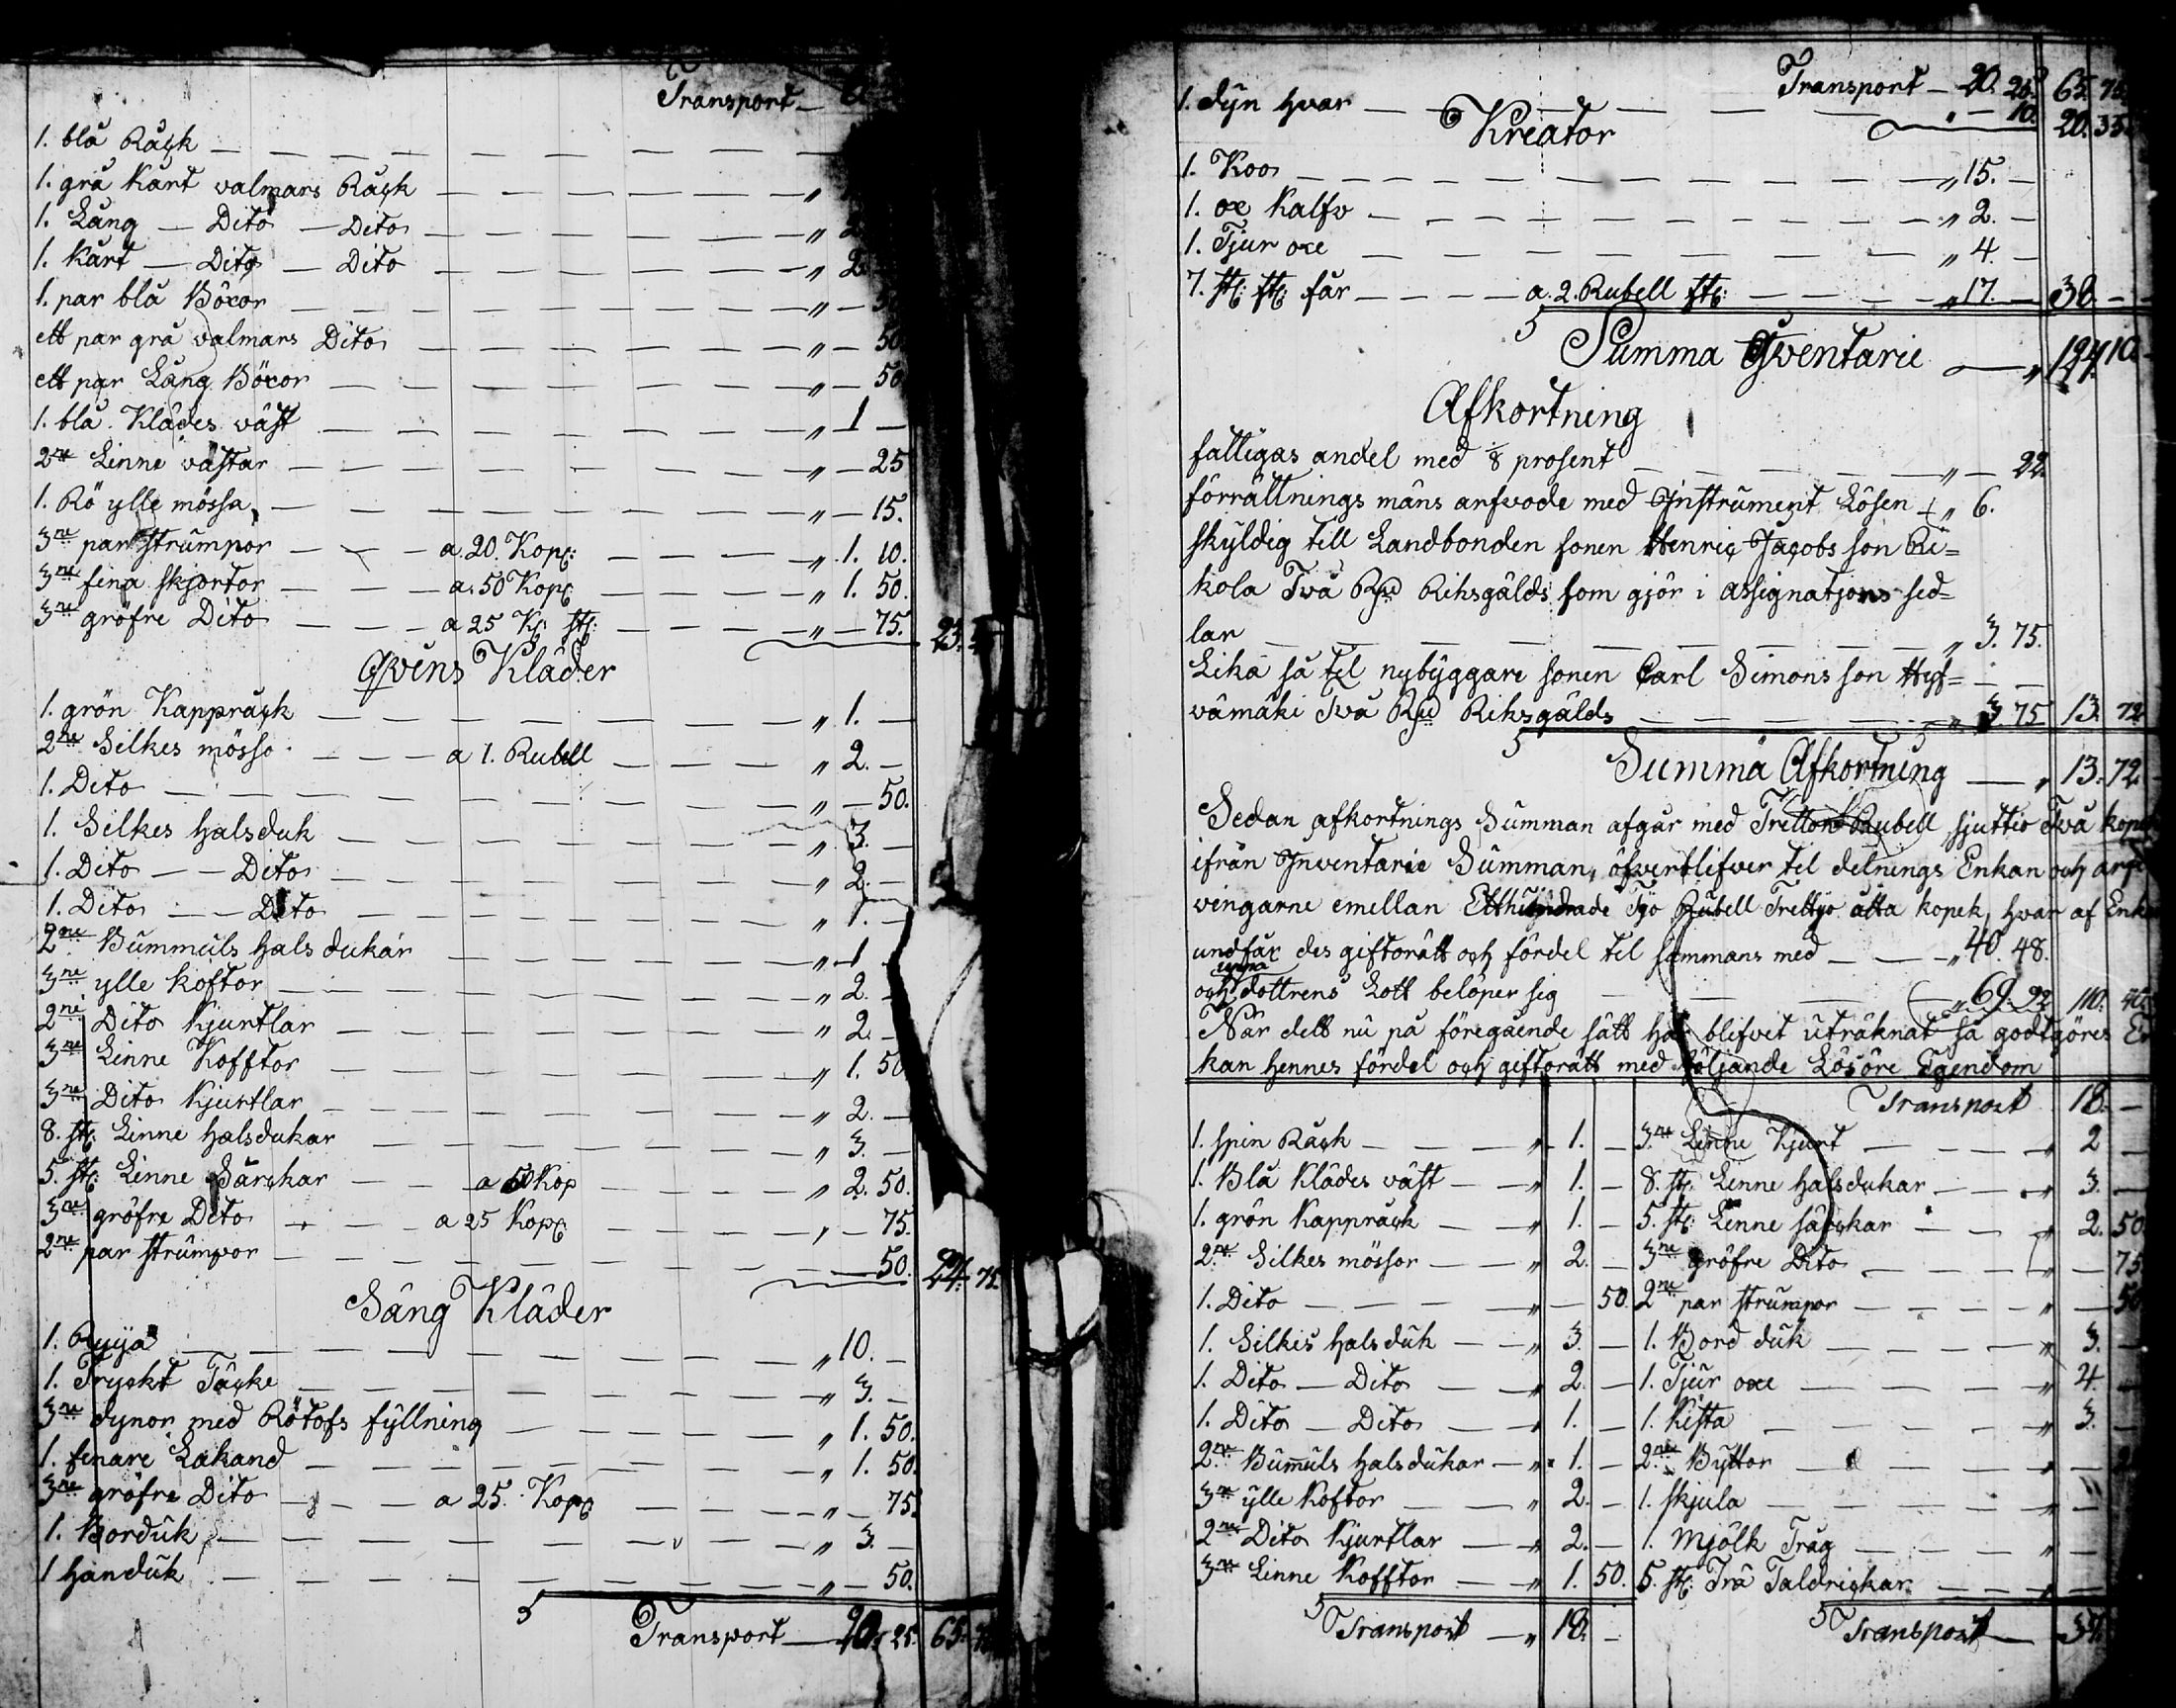 Transport —
1. blå Råck
1. grå kårt valmars Råck „
1. Lång — Dito — Dito „ 2
1. kårt — Dito — Dito „ 2.
1. par blå Böxor „ —
ett par grå valmars Dito „ — 50
ett par Lång Böxor „ — 50
1. blå Klädes väst „ 1 —
2ne Linne västar „ — 25
1. Rö ylle mössa „ — 15.
3ne par strumpor — a 20. Kopc: „ 1. 10.
3ne fina skjortor — a. 50 Kopc „ 1. 50.
3ne gröfre Dito — a 25 Kp stc: „ — 75. 23.
Qvens Kläder
1. grön Kappråck „ 1. —
2ne Silkes mösso — a 1. Rubell „ 2. —
1. Dito „ — 50.
1. Silkes halsduk „ 3. —
1. Dito — Dito „ 2. —
1. Dito — Dito „ 1. —
2ne Bummuls hals dukar „ 1
3ne ylle koftor „ 2. —
2ne Dito Kjurtlar „ 2. —
3ne Linne Kofftor „ 1. 50
3ne Dito Kjurtlar „ 2. —
8. stc: Linne halsdukar „ 3. —
5. stc: Linne Särckar — a 50 Kop „ 2. 50.
3ne gröfre Dito — a 25 Kopc „ — 75.
2ne par strumpor — 50. 24. 75.
Säng Kläder
1. Ryija „ 10. —
1. Tryckt Täcke „ 3. —
3ne dynor med Rötofs fyllning „ 1. 50.
1. fenare Lakand „ 1. 50.
3ne gröfre Dito — a 25. Kopc „ — 75.
1. Borduk „ 3. —
1 handuk „ — 50.
Transport — 20. 25. 65.
Transport — 20. 25. 65. 75
1. dyn hvar „ — 10. 20. 35
Kreator
1. Koo „ 15. —
1. ox Kalfv „ 2. —
1. Tjur oxe „ 4. —
7. stc: stc: får — a. 2. Rubell stc: „ 17. — 38 —
Summa Inventarie — „ 124. 10.
Afkortning
fattigas andel med 1/8 prosent „ — 22
förrättnings mäns arfvode med Instrument Lösen „ 6.
skyldig till Landbonden sonen Henric Jacobs son Ri=
kola Två Rd Riksgälds som gjör i assignatjons sed=
lar „ 3. 75.
Lika så tel nybyggare sonen Carl Simons son Hyf=
vämäki två Rd Riksgälds „ 3. 75 13. 72
Summa Afkortning — „ 13. 72.
Sedan afkortnings Summan afgår med Tretton Rubell sjuttio Två kopek
ifrån Inventarie Summan, öfverblifver tel delnings Enkan och arf
vingarne emellan Etthundrade Tyo Rubell Trettyo åtta kopek, hvar af Enk
undfår des giftorätt och fördel tel sammans med — „ 40. 48.
och dottrens Lott belöper sig „ 69. 92 110.
När dett nu på föregående sätt har blifvet uträknat så godtgöres En
kan hennes fördel och giftorätt med följande Lösöre Egendom
Transport 18. —
1. spin Råck „ 1. — 3ne Linne Kjurt „ 2 —
1. Blå Klädes väst „ 1. — 8. stc. Linne halsdukar „ 3. —
1. grön Kappråck „ 1. — 5. stc: Linne särckar „ 2. 50
2ne Silkes mössor „ 2. — 3ne gröfre Dito „ — 75
1. Dito „ — 50. 2ne par strumpor „ — 50
1. Silkes halsduk „ 3. — 1. Bord duk „ 3. —
1. Dito — Dito „ 2. — 1. Tjur oxe „ 4. —
1. Dito — Dito „ 1. — 1. Kista „ 3. —
2ne Bummuls halsdukar „ 1. — 2ne Byttor „ —
3ne ylle koftor „ 2. — 1. skjula „ —
2ne Dito Kjurtlar „ 2. — 1. Mjölk Tråg „ —
3ne Linne Kofftor „ 1. 50. 5. stc: Trä Taldrickar „ —
Transport — „ 18. — Transport — 37.